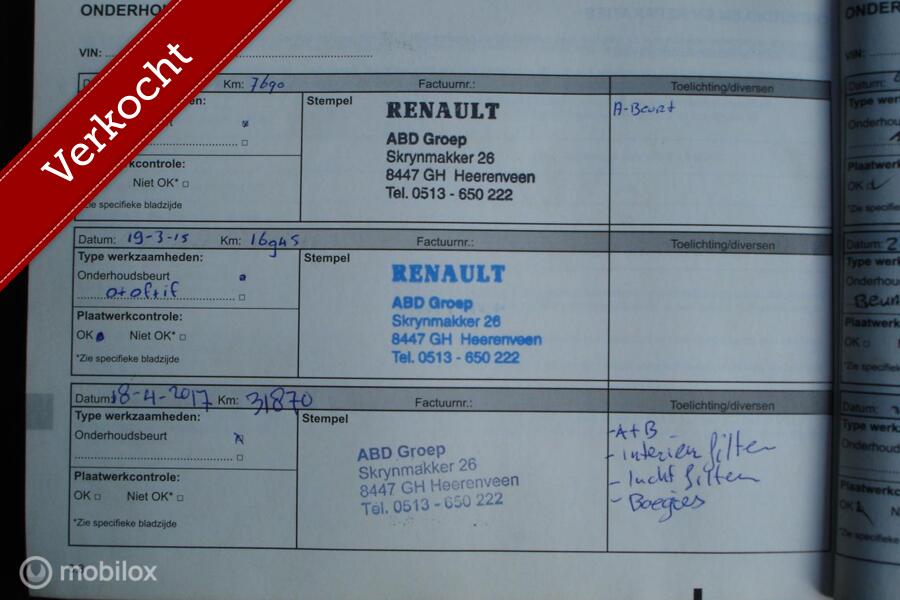 ONDERHO
VIN:
Verkocht
Km: 7690 Factuurnr.: Toelichting/diversen
en:
Stempel
RENAULT
ABD Groep
Skrynmakker 26
8447 GH Heerenveen
Tel. 0513 - 650 222
A-Beurt
kcontrole:
Niet OK*
Zie specifieke bladzijde
Datum: 19-3-15 Km: 16945 Factuurnr.: Toelichting/diversen
Type werkzaamheden:
Onderhoudsbeurt
o+of+if
Plaatwerkcontrole:
OK Niet OK*
*Zie specifieke bladzijde
Stempel
RENAULT
ABD Groep
Skrynmakker 26
8447 GH Heerenveen
Tel. 0513 - 650 222
Datum: 18-4-2017 Km: 31870 Factuurnr.: Toelichting/diversen
Type werkzaamheden:
Onderhoudsbeurt
Plaatwerkcontrole:
OK Niet OK*
*Zie specifieke bladzijde
Stempel
ABD Groep
Skrynmakker 26
8447 GH Heerenveen
Tel. 0513 - 650 222
- A+B
- interieur filter
- lucht filter
- Boegies
ONDERH
VIN:
Datum:
Type werk
Onderhou
Plaatwerk
OK
*Zie specifie
Datum: 2
Type werk
Onderhou
Beur
Plaatwerk
OK
*Zie specifie
Datum:
Type werk
Onderhoud
Plaatwerkc
OK N
*Zie specifie
mobilox